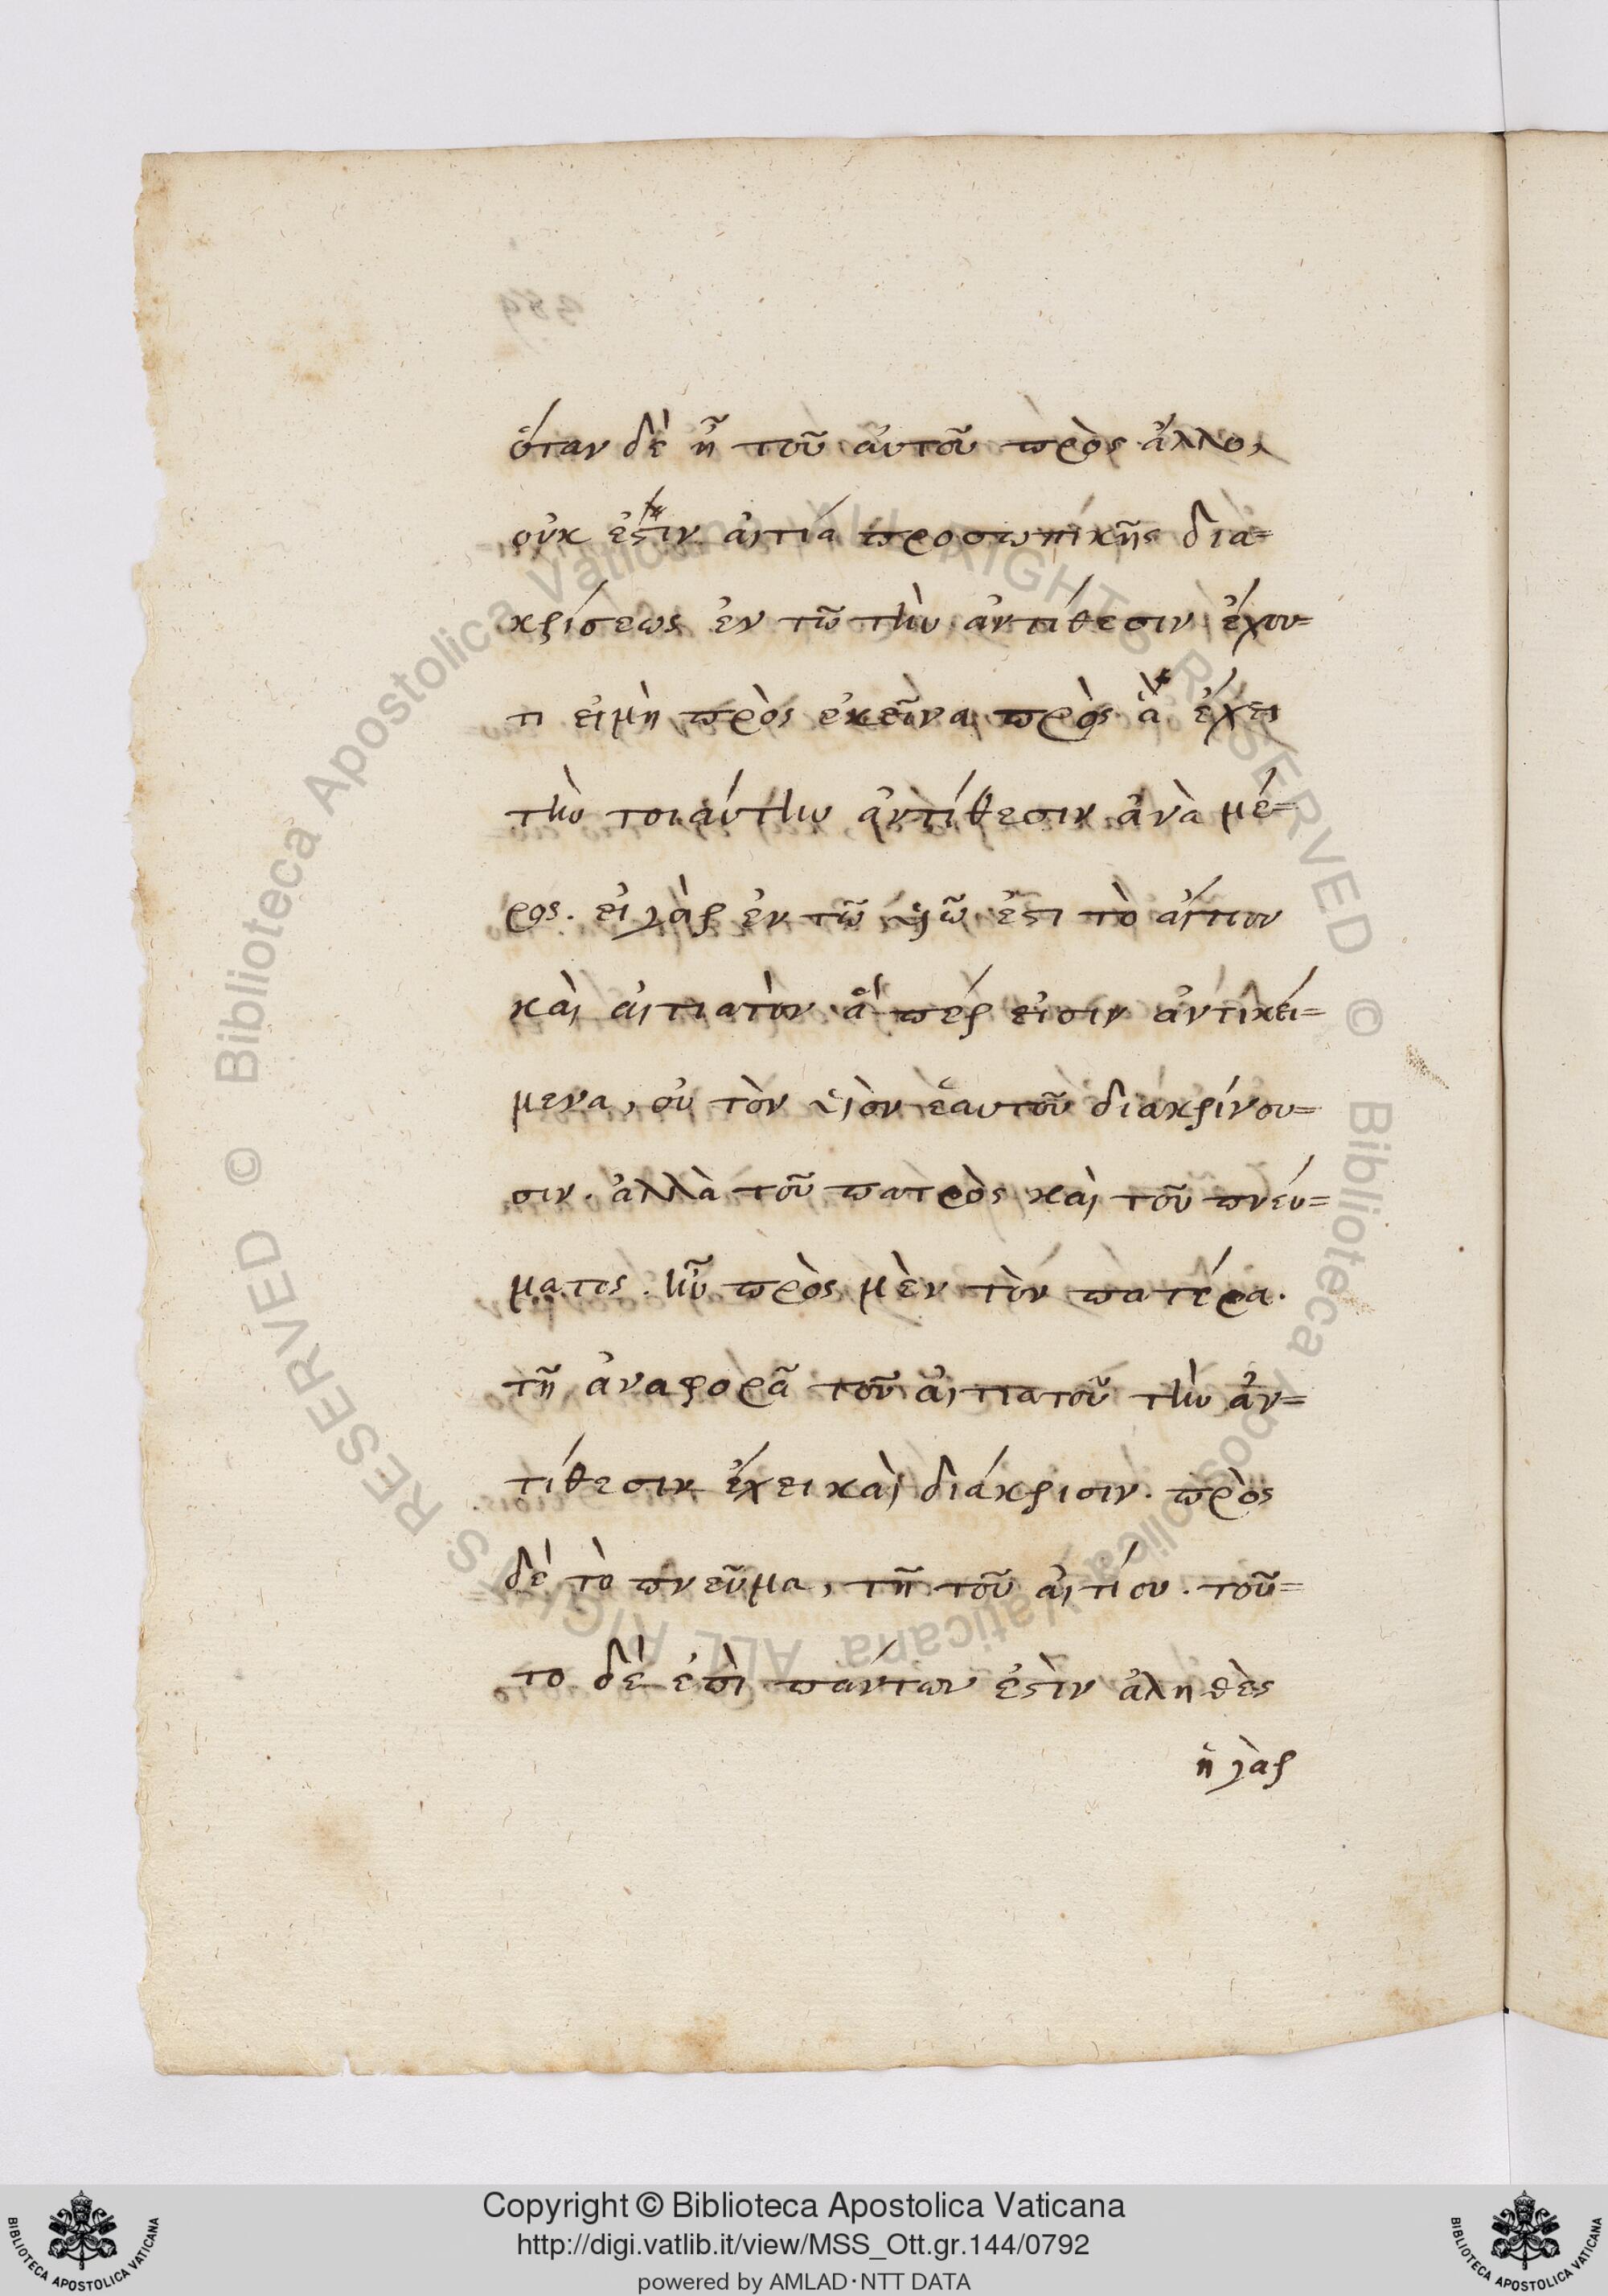 ὅταν δὲ ἦ τοῦ αὐτοῦ πρὸς ἄλλο,
οὐκ ἔστιν αἰτία προσωπικῆς δια=
κρίσεως ἐν τῶ τὴν ἀντίθεσιν ἔχον=
τι εἰμὴ πρὸς ἐκεῖνα πρὸς ἃ ἔχει
τὴν τοιάυτην ἀντίθεσιν ἀνὰ μέ=
ρος. εἰ γὰρ ἐν τῶ ϋἱῶ ἐστι τὸ ἄιτιον
καὶ αἰτιατὸν ἅ περ εἰσιν ἀντικεί=
μενα, οὐ τὸν ὑιὸν ἑαυτοῦ διακρίνου=
σιν. ἀλλὰ τοῦ πατρὸς καὶ τοῦ πνεύ=
ματος. ἣν πρὸς μὲν τὸν πατέρα.
τῆ ἀναφορᾶ τοῦ αἰτιατοῦ τὴν ἀν=
τίθεσιν ἔχει καὶ διάκρισιν. πρὸς
δὲ τὸ πνεῦμα, τῆ τοῦ αἰτίου. τοῦ=
το δὲ ἐπὶ πάντων ἐστὶν ἀληθὲς
ἡ γὰρ
Copyright © Biblioteca Apostolica Vaticana
http://digi.vatlib.it/view/MSS_Ott.gr.144/0792
powered by AMLAD·NTT DATA
BIBLIOTECA APOSTOLICA VATICANA
BIBLIOTECA APOSTOLICA VATICANA
© Biblioteca Apostolica Vaticana ALL RIGHTS RESERVED © Biblioteca Apostolica Vaticana ALL RIGHTS RESERVED